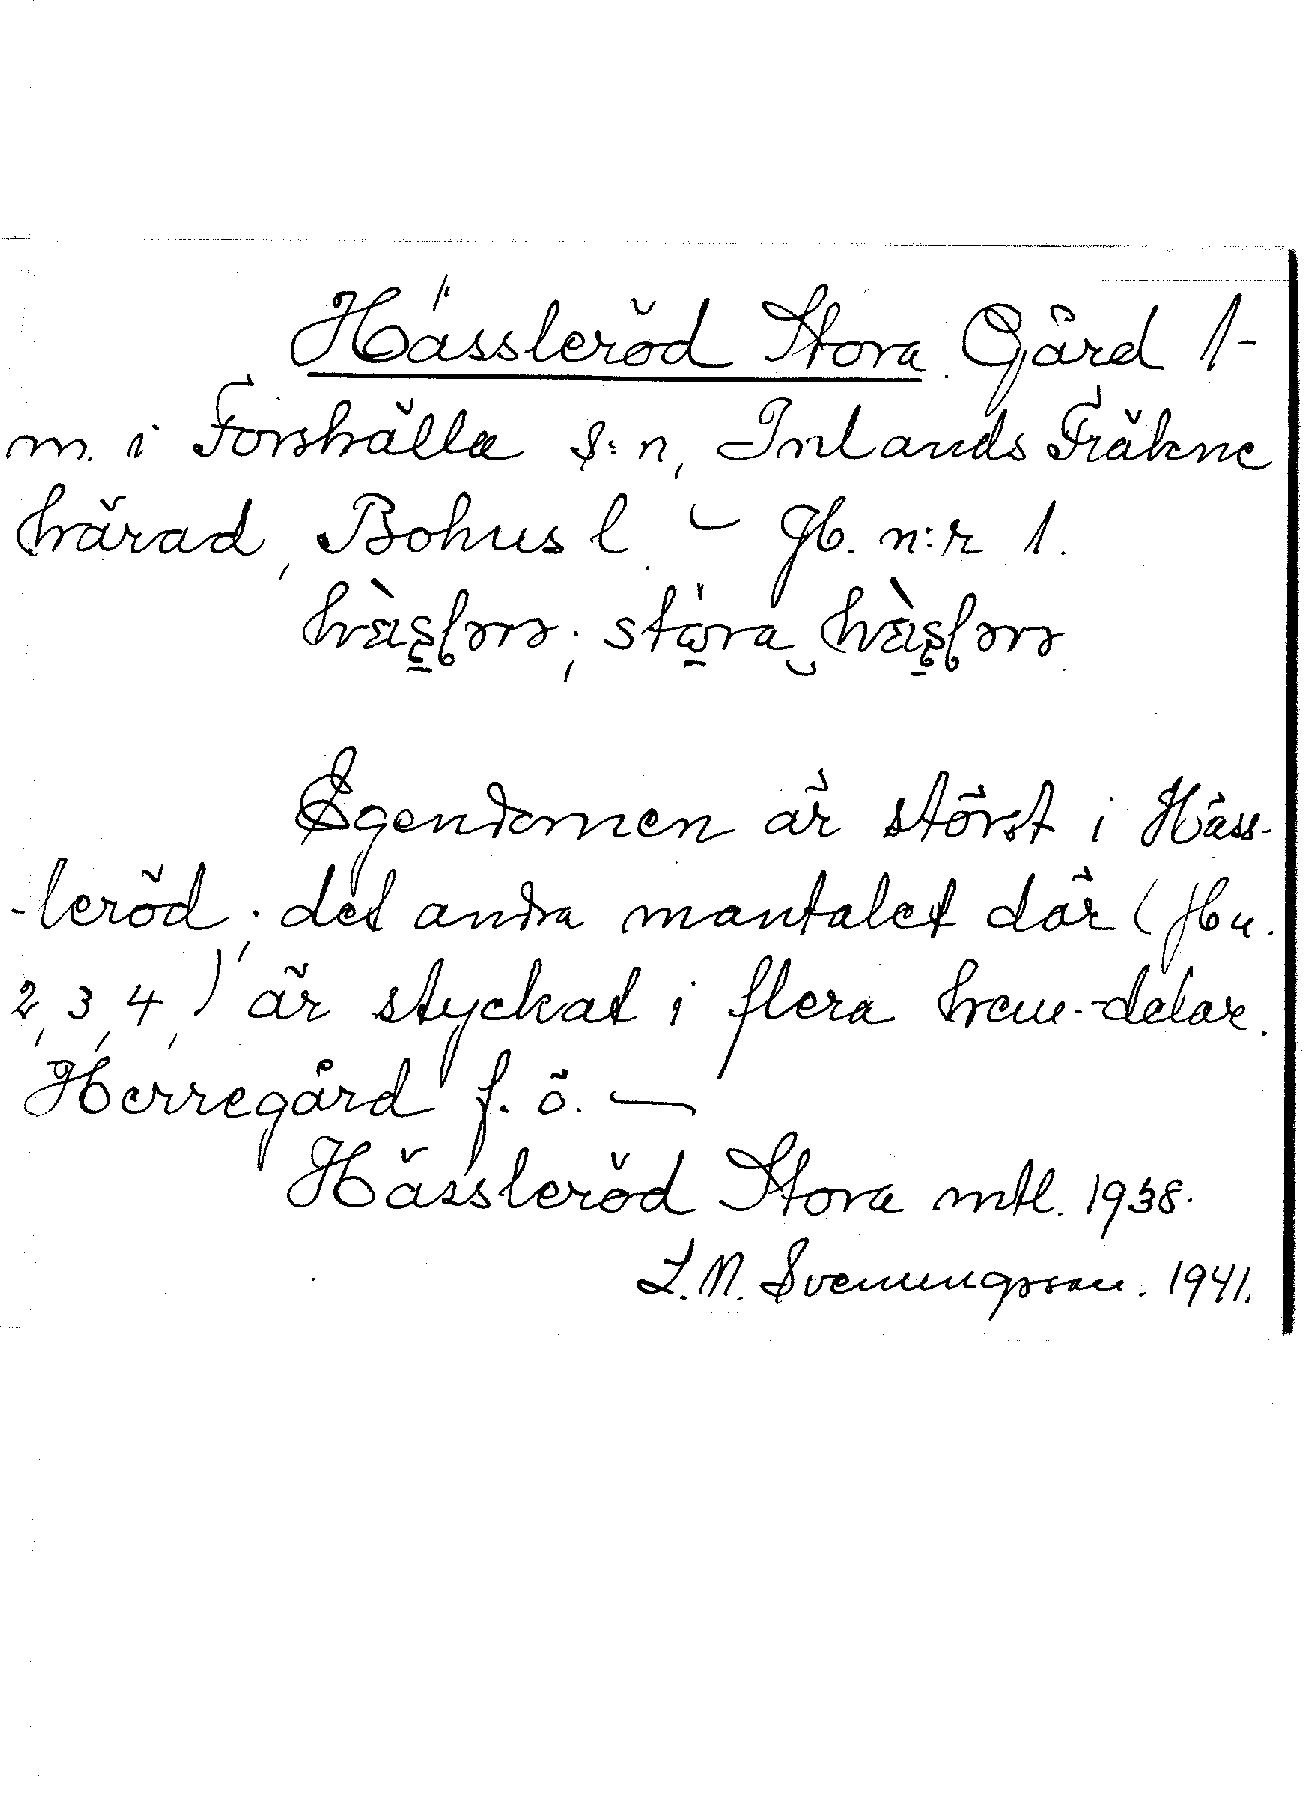 Hässleröd Stora Gård 1-
m. i Forshälla s:n, Inlands Fräkne
härad, Bohus l. – Jb. n:r 1.
stora
Egendomen är störst i Häss-
-leröd; det andra mantalet där (Jbn.
2, 3, 4,) är styckat i flera hem-delar.
Herregård f. ö. —
Hässleröd Stora mtl. 1938.
L. N. Svenungsson. 1941.